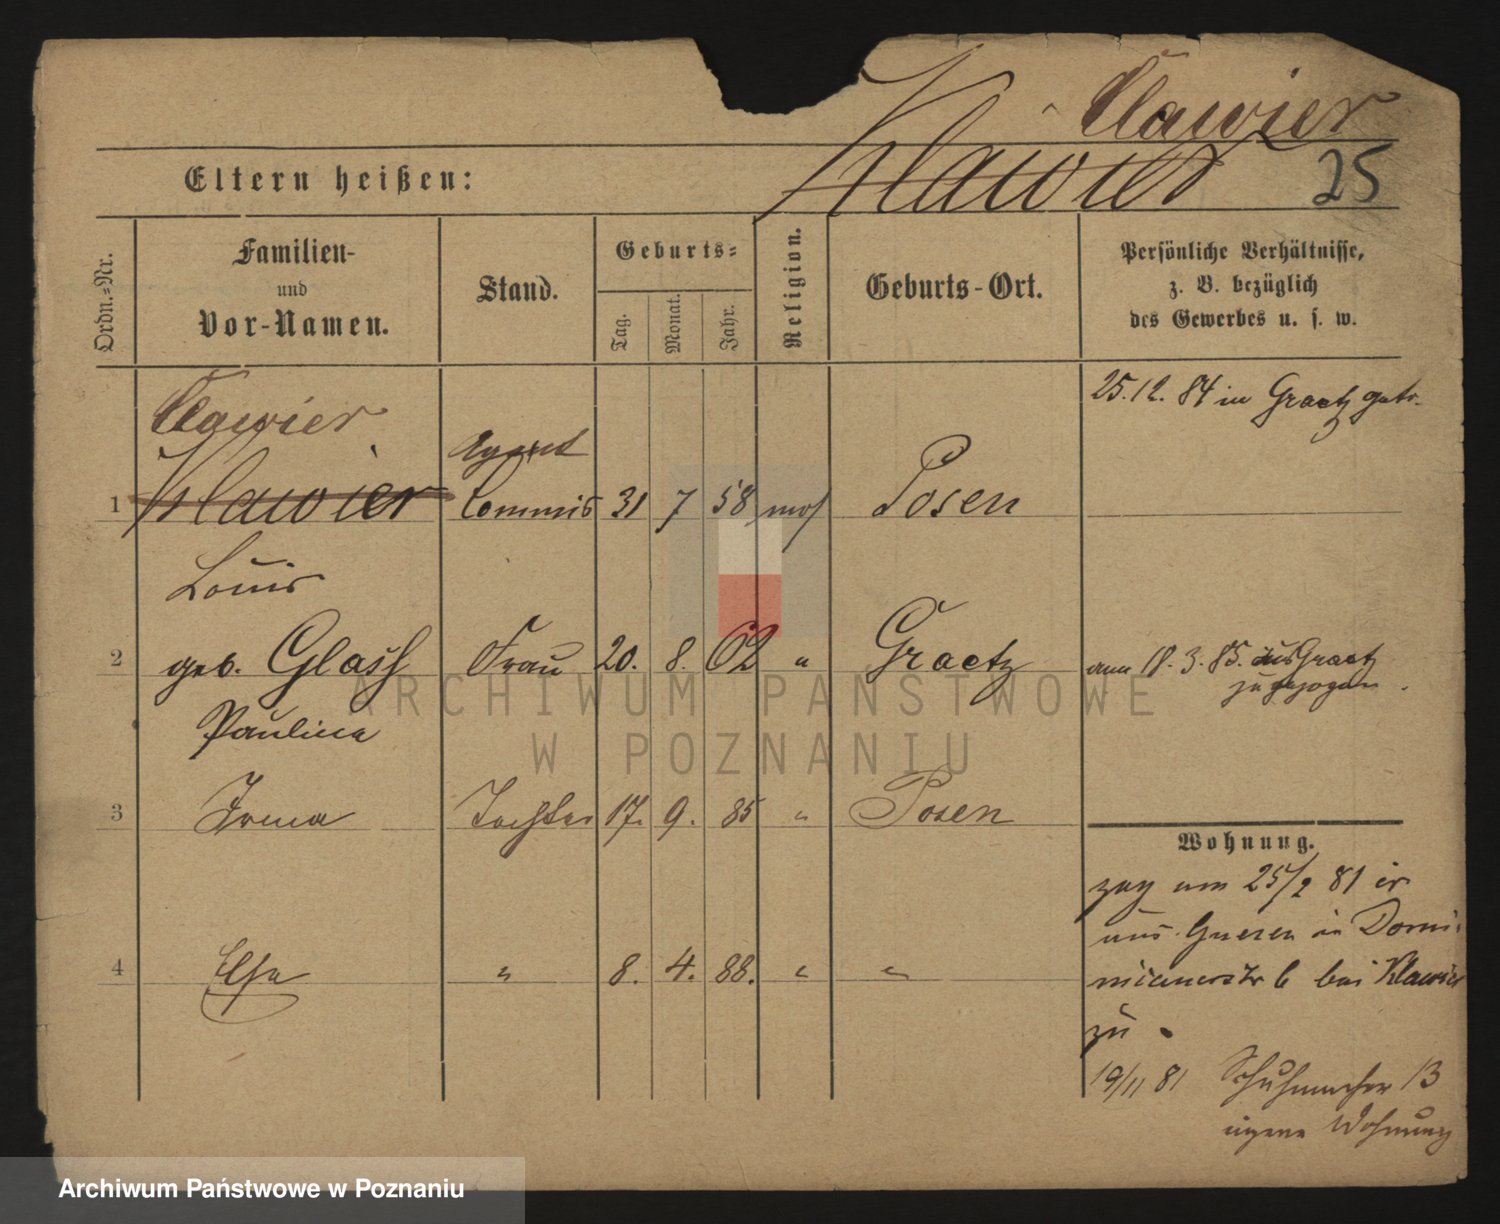 Clawier
Klawier 25
Eltern heißen:
Ordn.-Nr.
Familien-
und
Vor-Namen.
Stand.
Geburts-
Tag.
Monat.
Jahr.
Religion.
Geburts-Ort.
Persönliche Verhältnisse,
z. B. bezüglich
des Gewerbes u. s. w.
25.12.84 in Graetz getr.
Clawier
Agent
1 Klawier Commis 31 7 58 mos Posen
Louis
2 geb. Glass Frau 20. 8. 62 " Graetz
am 18.3.85. aus Graetz
zugezogen.
Paulina
3 Irma Tochter 17. 9. 85 " Posen
Wohnung.
zog am 25/2 81 er
aus Gnesen in Domi-
4 Elsa " 8. 4. 88. " "
nicanerstr 6 bei Klawier
zu.
19/11 81 Schuhmacher 13
eigene Wohnung
ARCHIWUM PAŃSTWOWE
W POZNANIU
Archiwum Państwowe w Poznaniu